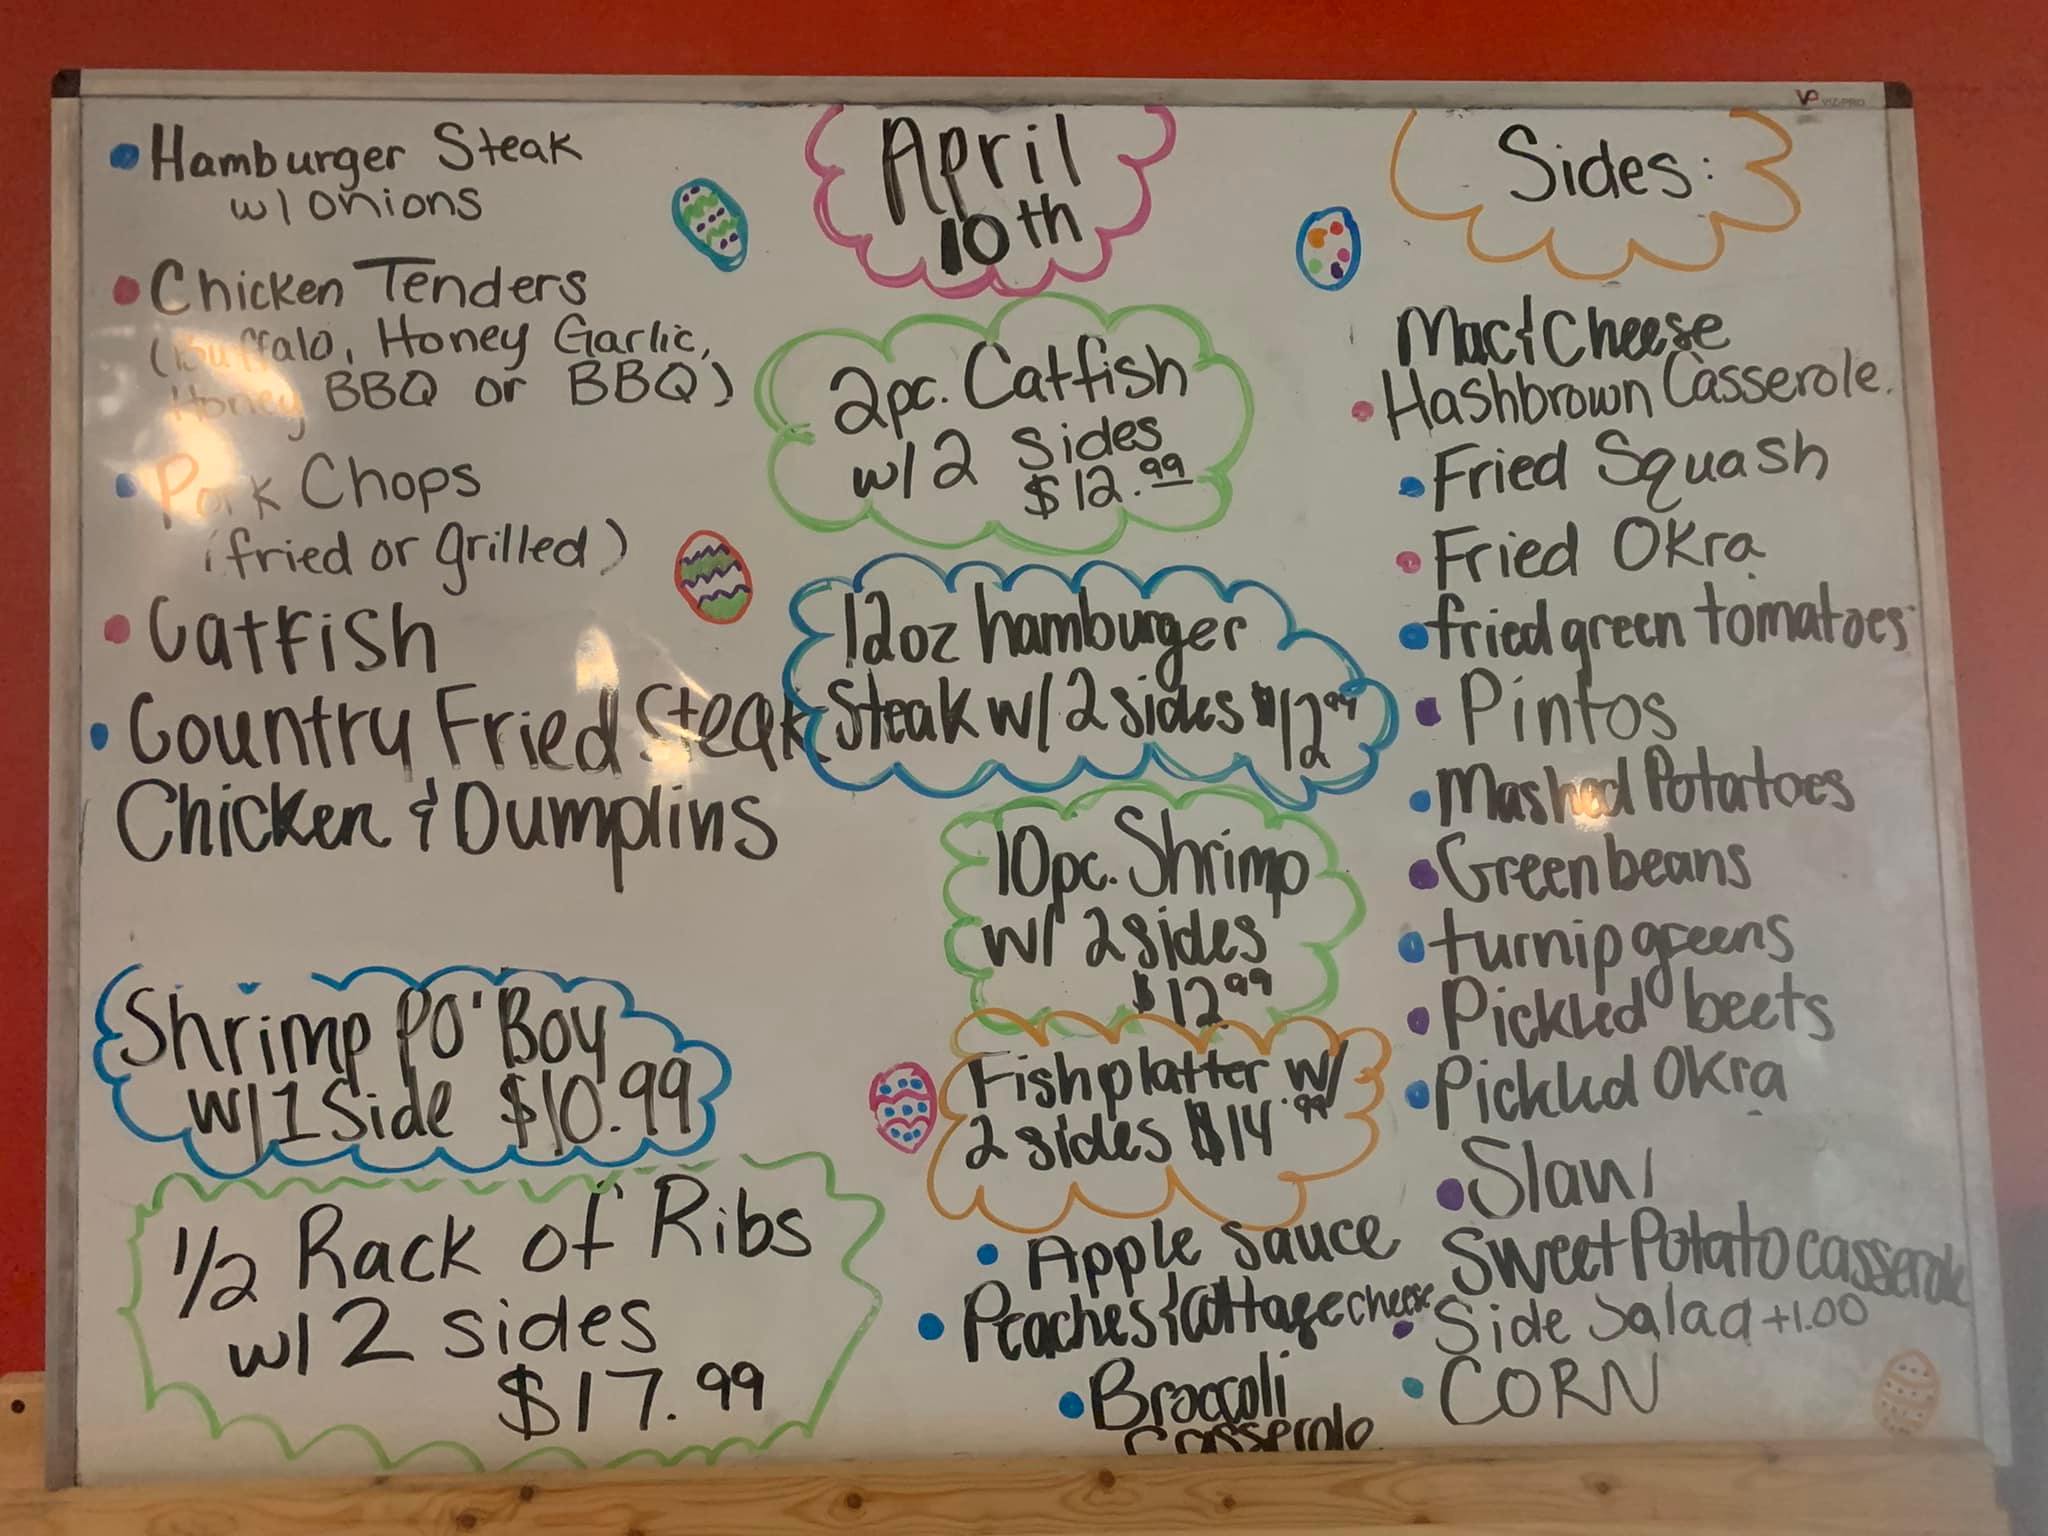 VP VIZ-PRO
Hamburger Steak
w/ onions
Chicken Tenders
(Buffalo, Honey Garlic,
Honey BBQ or BBQ)
Pork Chops
(fried or grilled)
Catfish
Country Fried Steak
Chicken & Dumplins
Shrimp PO' Boy
w/ 1 Side $10.99
1/2 Rack of Ribs
w/ 2 sides
$17.99
April
10th
2pc. Catfish
w/ 2 Sides
$12.99
12oz hamburger
Steak w/ 2 sides $12.99
10pc. Shrimp
w/ 2 sides
$12.99
Fish platter w/
2 sides $14.99
Sides:
Mac & Cheese
Hashbrown Casserole.
Fried Squash
Fried Okra
fried green tomatoes
Pintos
Mashed Potatoes
Green beans
turnip greens
Pickled beets
Pickled Okra
Slaw
Sweet Potato casserole
Side Salad +1.00
CORN
Apple Sauce
Peaches & Cottage cheese
Broccoli
Casserole